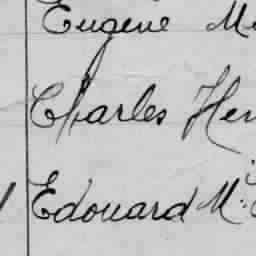 Eugene M
Charles Hen
Edouard M.